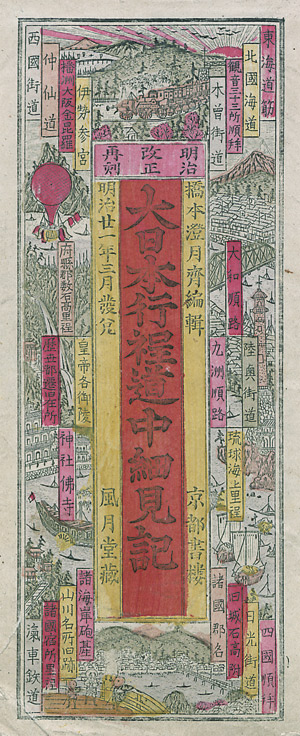 東海道筋
北國海道
觀音三十三所順拜
木曾街道
伊勢参宮
仲仙道
西國街道
明治
改正
再刻
橋本澄月齊編輯
京都書樓
大日本行程道中細見記
明治廿一年三月發兌
風月堂藏
大和順路
九洲順路
陸奥街道
琉球海上里程
諸國郡名
旧城石高附
日光街道
四國順拝
府縣郡數石高里程
歴世都遷里在所
皇帝各御陵
神社佛寺
諸海岸砲䑓
山川名所旧跡
滊車鉄道